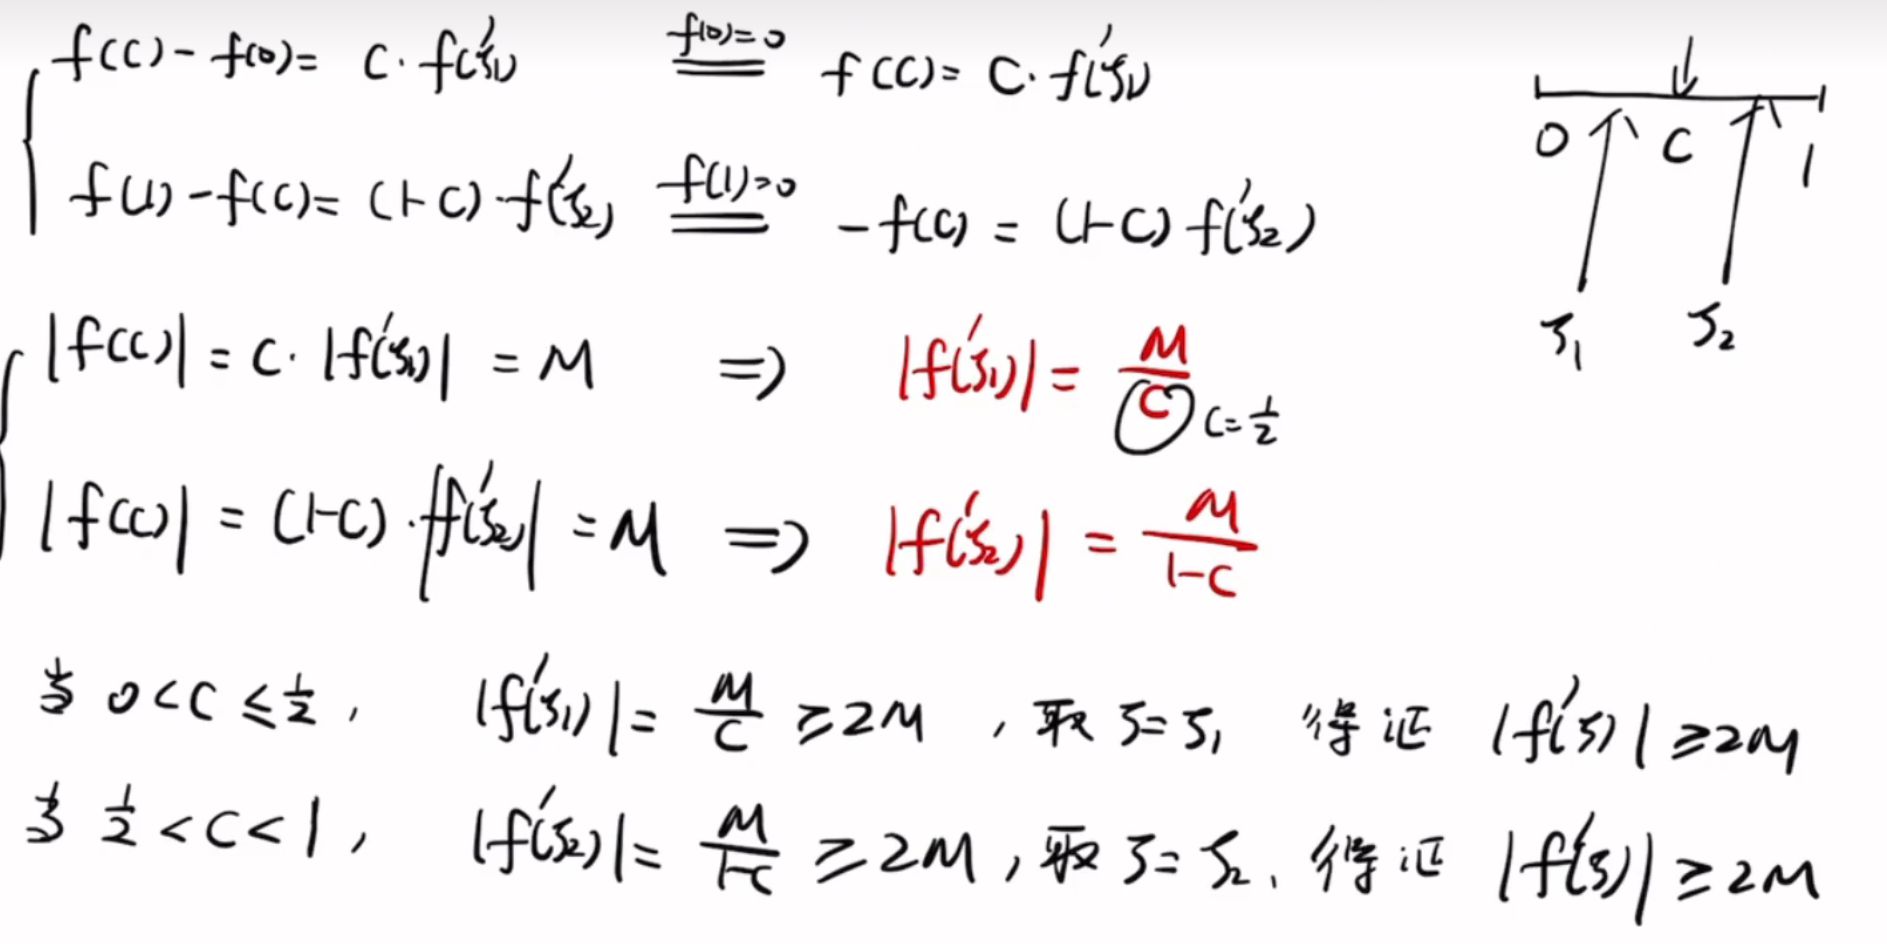 f(c) - f(0) = c · f'(ξ₁) \overset{f(0)=0}{=} f(c) = c · f'(ξ₁)
f(1) - f(c) = (1-c) · f'(ξ₂) \overset{f(1)=0}{=} -f(c) = (1-c) f'(ξ₂)
0 c 1
ξ₁ ξ₂
|f(c)| = c · |f'(ξ₁)| = M ⇒ |f'(ξ₁)| = M/c c=1/2
|f(c)| = (1-c) · |f'(ξ₂)| = M ⇒ |f'(ξ₂)| = M/(1-c)
当 0<c≤1/2, |f'(ξ₁)| = M/c ≥2M, 取 ξ=ξ₁ 得证 |f'(ξ)| ≥2M
当 1/2<c<1, |f'(ξ₂)| = M/(1-c) ≥2M, 取 ξ=ξ₂, 得证 |f'(ξ)| ≥2M